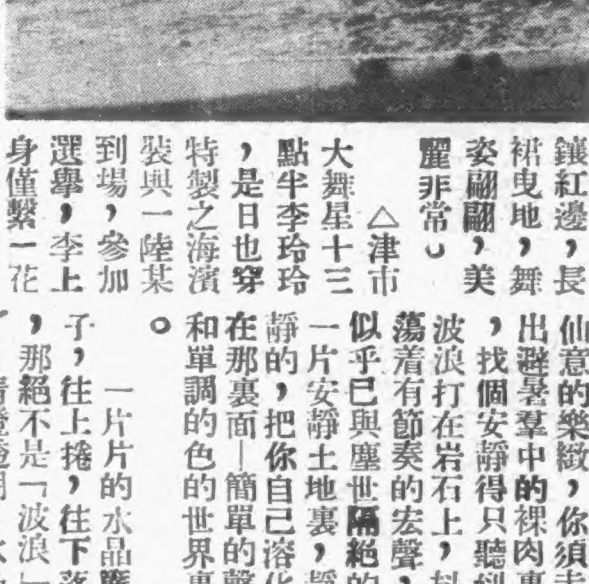 鑲紅邊，長
裙曳地，舞
姿翩翩，美
麗非常。
△津市
大舞星十三
點半李玲玲
，是日也穿
特製之海濱
裝與一陸某
到場，參加
選舉，李上
身僅繫一花
仙意的樂緻，你須
出避暑羣中的裸肉
，找個安靜得只聽到
波浪打在岩石上，
蕩着有節奏的宏聲，
似乎已與塵世隔絕的
一片安靜土地裏，靜
靜的，把你自己溶化
在那裏面—簡單的聲
和單調的色的世界裏
。
一片片的水晶簾
子，往上捲，往下落
，那絕不是「波浪」